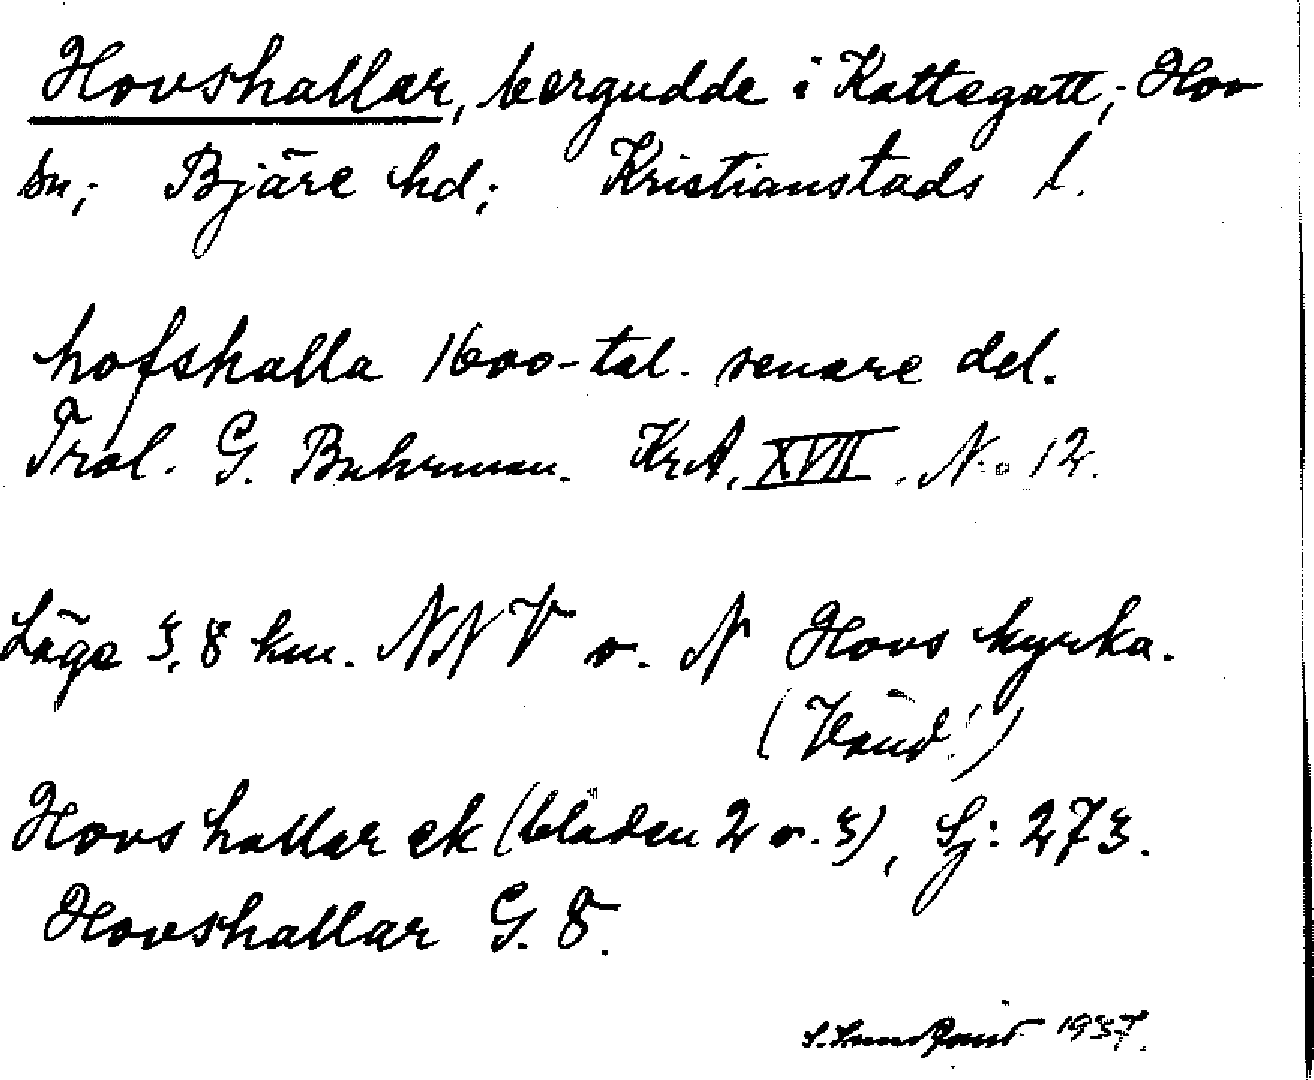 Hovshallar, bergudde i Kattegatt; Hov
sn; Bjäre hd; Kristianstads l.
hofshalla 1600-tal. senare del.
Trol. G. Buhrman. KrA, XVII. No 12.
Läge 3,8 km. NNV o. N Hovs kyrka.
(Vänd!)
Hovs hallar ek (bladen 2 o. 3), Sj: 273.
Hovshallar G. 8.
1937.